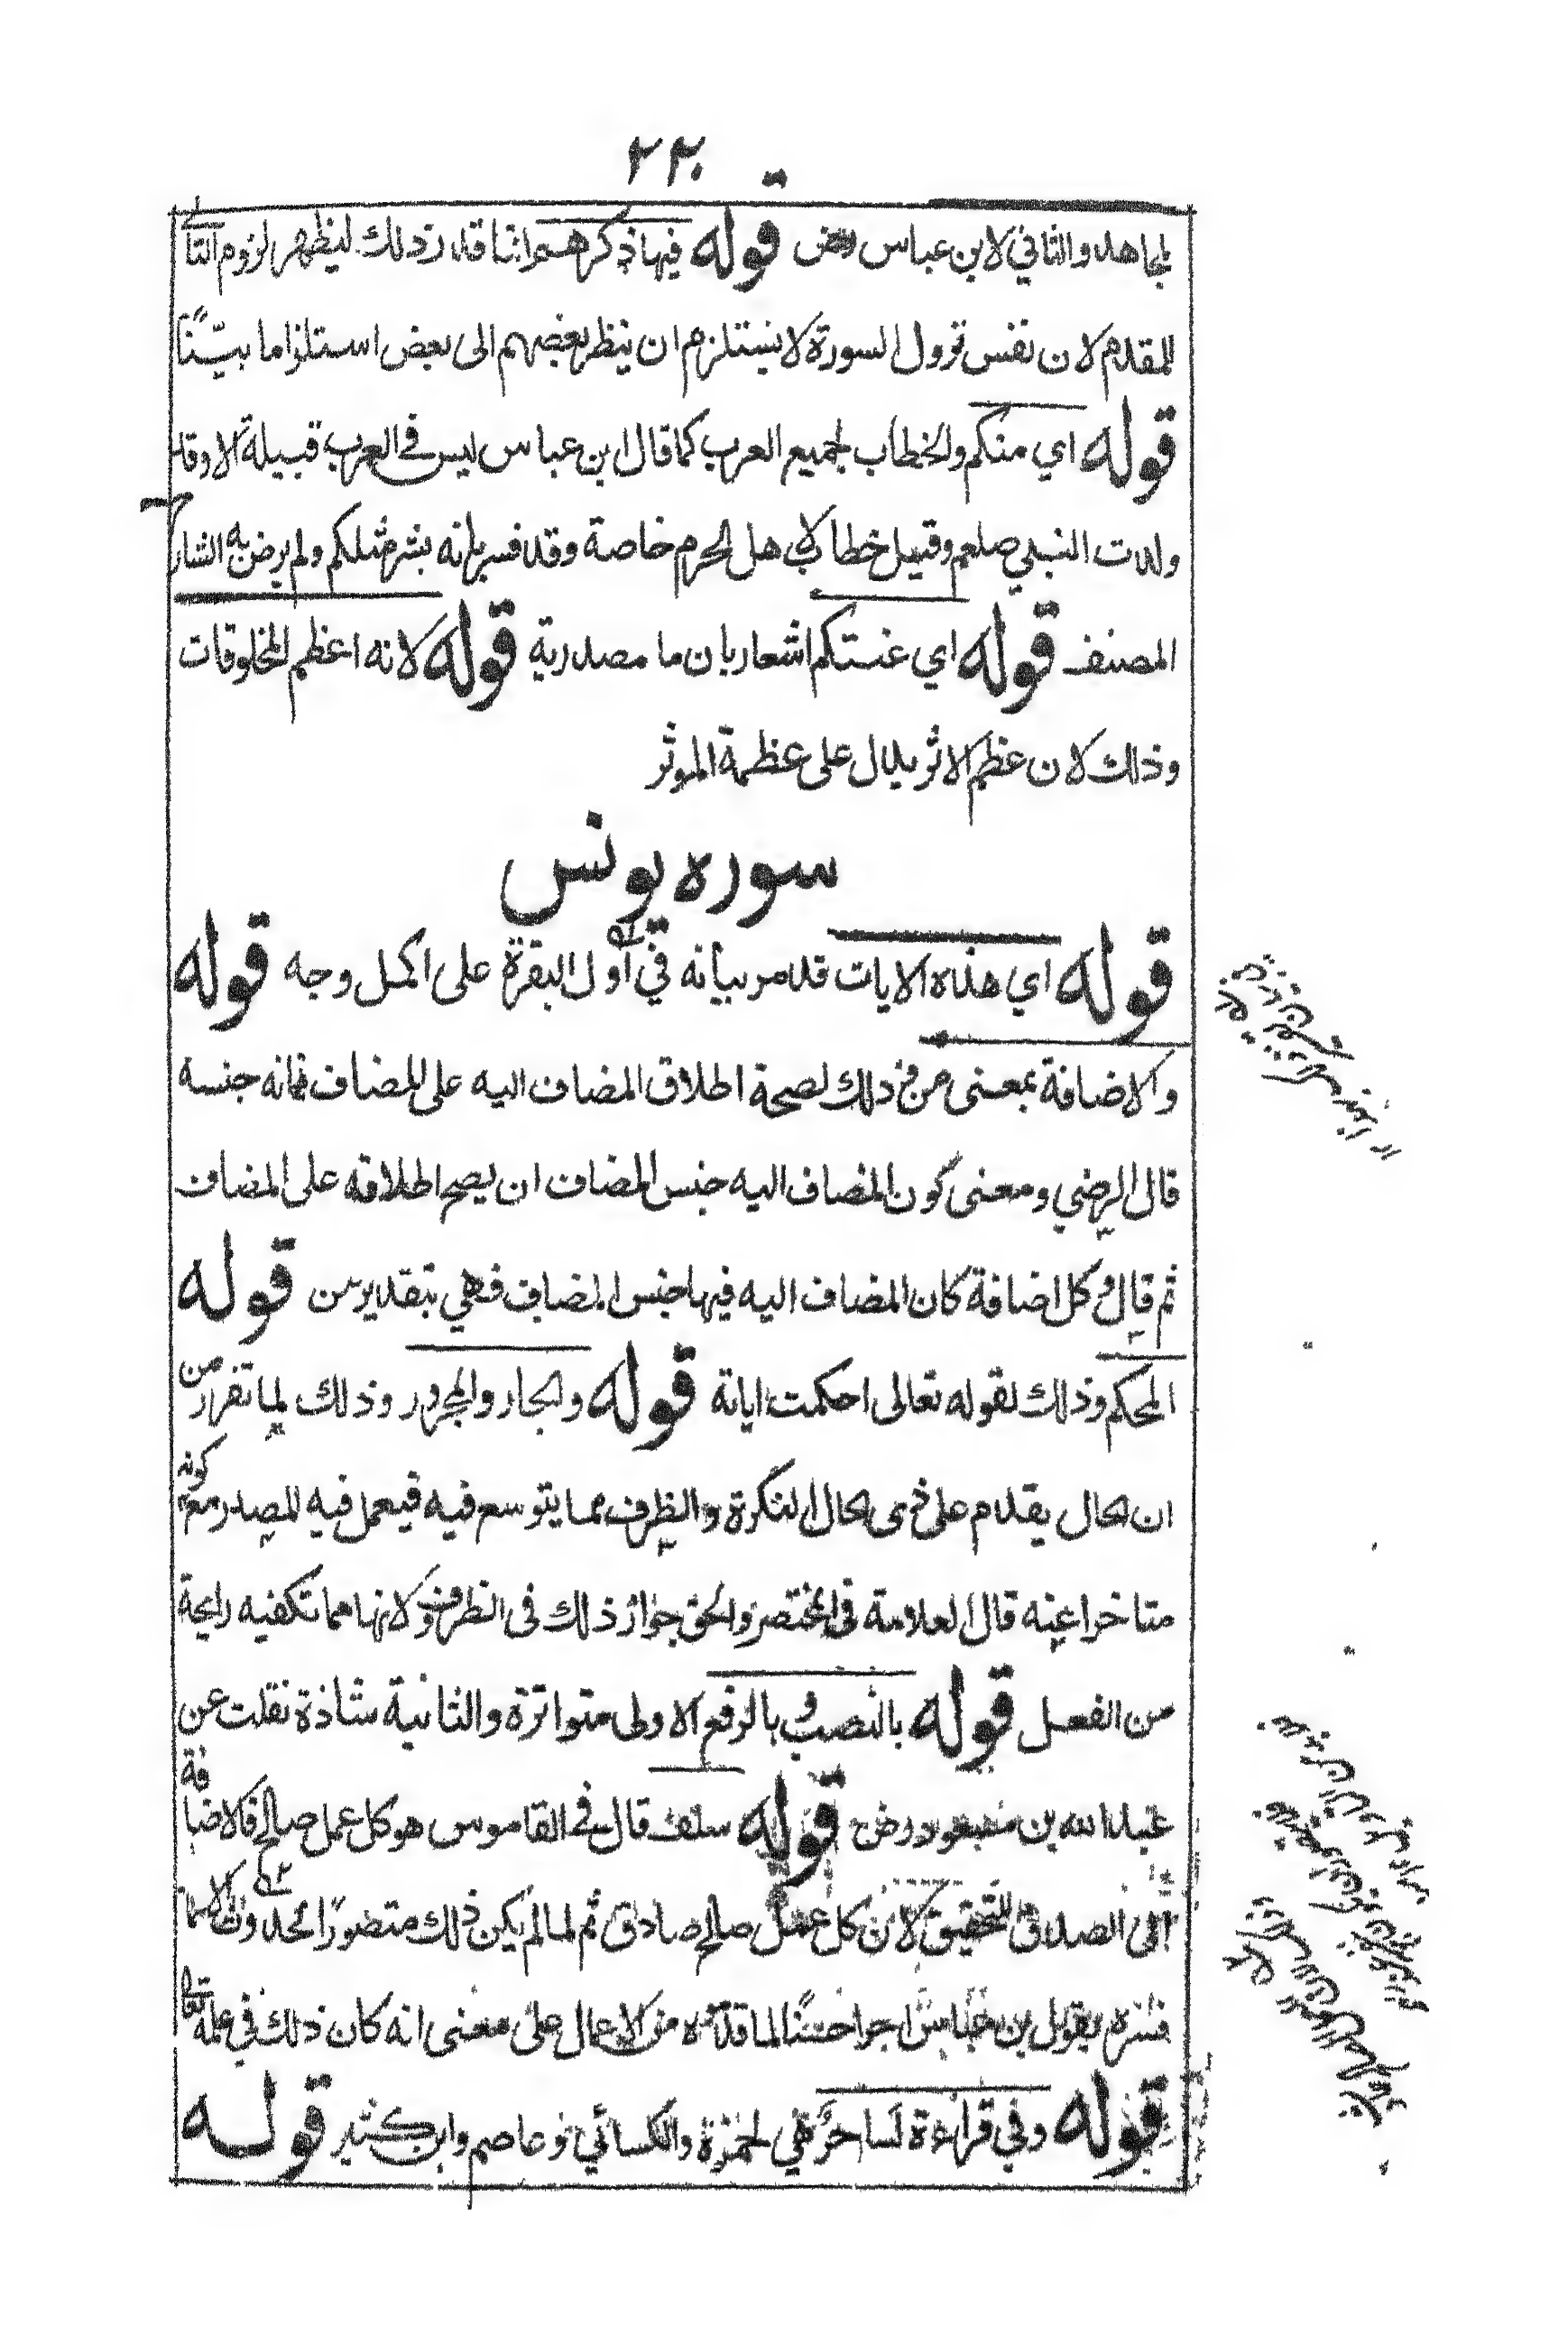 ٢٣٠
لمجاهد والثاني لابن عباس رض قوله فيها ذكرهم انما قدر ذلك ليظهر لزوم التالى
للمقدم لان نفس نزول السورة لا يستلزم ان ينظر بعضهم الى بعض استلزاما بيّنًا
قوله اي منكم والخطاب لجميع العرب كما قال ابن عباس ليس في العرب قبيلة الا وقد
ولدت النبي صلعم وقيل خطاب لاهل الحرم خاصة وقد فسر بانه بشر مثلكم ولم يرض به الشارح
المصنف قوله اي عنتكم اشعار بان ما مصدرية قوله لانه اعظم المخلوقات
وذلك لان عظم الاثر يدل على عظمة الموثر
سوره يونس
قوله اي هذه الايات قد مر بيانه في اول البقرة على اكمل وجه قوله
والاضافة بمعنى من وذلك لصحة اطلاق المضاف اليه على المضاف فانه جنسه
قال الرضي ومعنى كون المضاف اليه جنس المضاف ان يصح اطلاقه على المضاف
ثم قال وكل اضافة كان المضاف اليه فيها جنس المضاف فهي بتقدير من قوله
المحكم وذلك لقوله تعالى احكمت اياته قوله والجار والمجرور وذلك لما تقرر من
ان الحال يقدم على ذى الحال النكرة والظرف مما يتوسع فيه فيعمل فيه المصدر مع كونه
متاخرا عنه قال العلامة في المختصر والحق جواز ذلك في الظروف لانها مما تكفيه رايحة
من الفعل قوله بالنصب وبالرفع الاولى متواترة والثانية شاذة نقلت عن
عبد الله بن مسعود رض قوله سلف قال في القاموس هو كل عمل صالح فالاضافة
الى الصدق للتحقيق لان كل عمل صالح صادق ثم لما لم يكن ذلك متصورا
فسره بقول ابن عباس اجرا حسنًا لما قدموه من الاعمال على معنى انه كان ذلك في علمه تعالى
قوله وفي قراءة لساحر هي لحمزة والكسائي وعاصم وابن كثير قوله